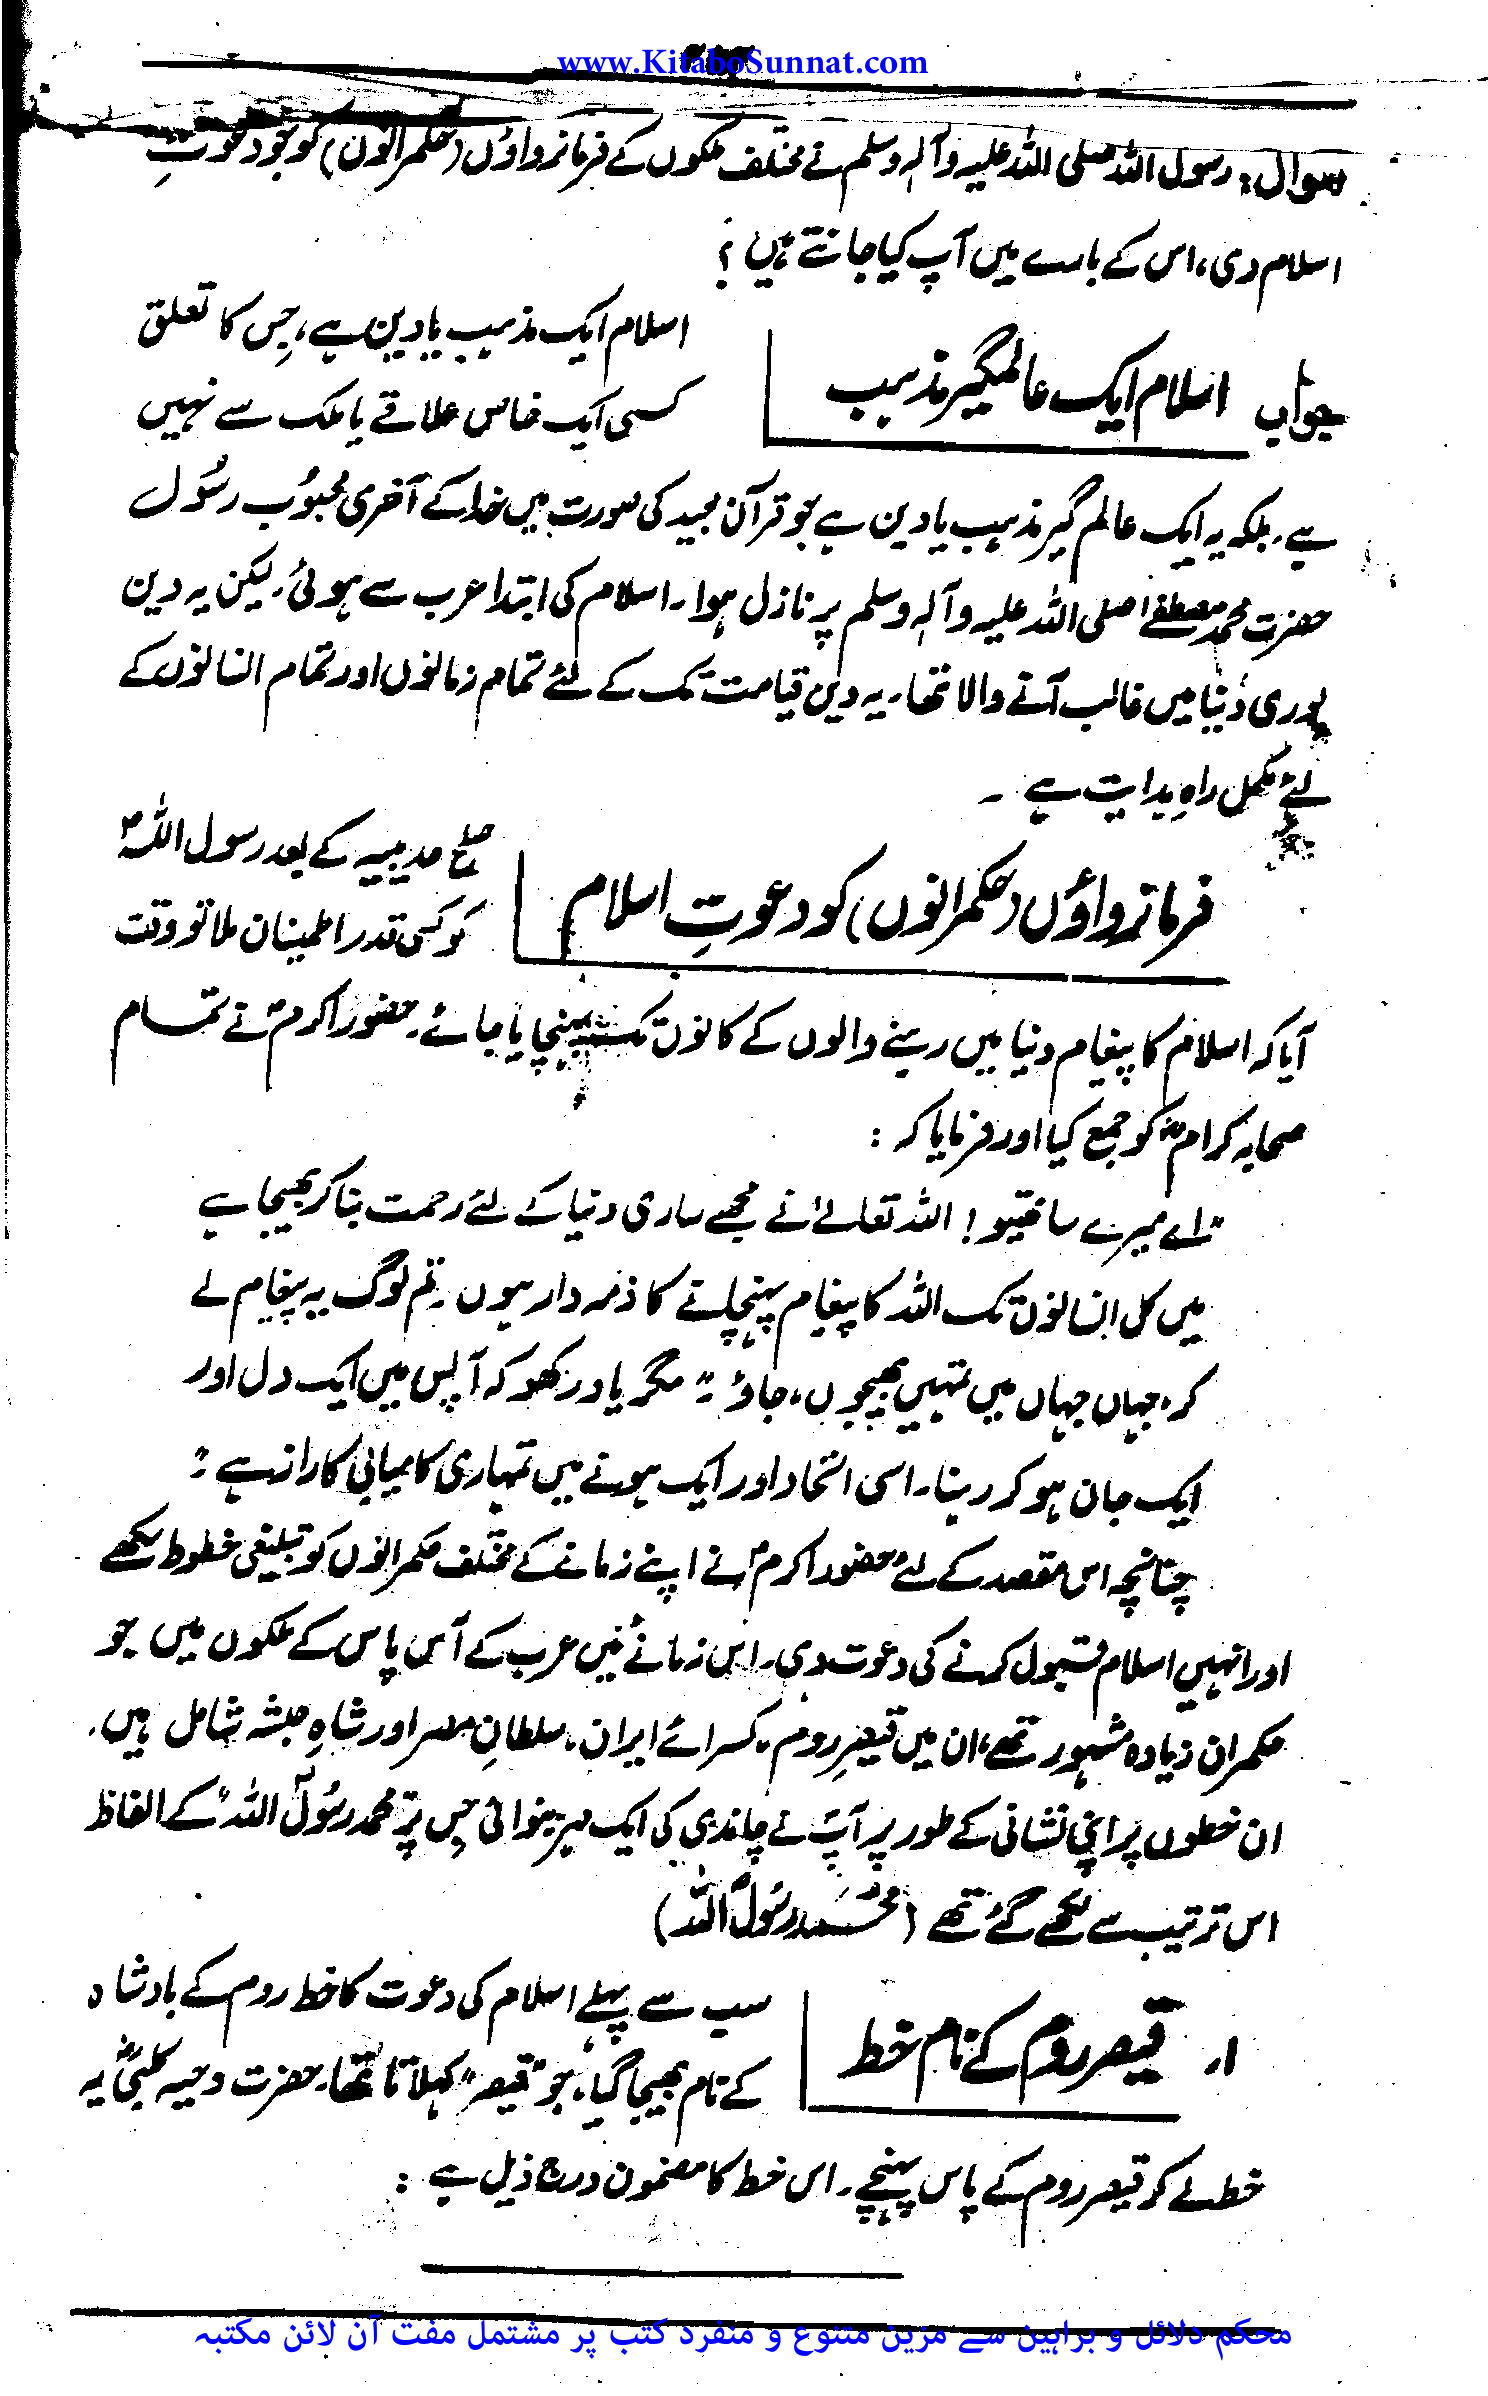 www.KitaboSunnat.com
سوال: رسول اللہ صلی اللہ علیہ وآلہٖ وسلم نے مختلف ملکوں کے فرمانرواؤں (حکمرانوں) کو جو دعوتِ
اسلام دی، اس کے بارے میں آپ کیا جانتے ہیں؟
جواب اسلام ایک عالمگیر مذہب
اسلام ایک مذہب یا دین ہے، جِس کا تعلق
کسی ایک خاص علاقے یا ملک سے نہیں
ہے۔ بلکہ یہ ایک عالم گیر مذہب یا دین ہے جو قرآن مجید کی صورت میں خدا کے آخری محبوُب رسُول
حضرت محمد مصطفےٰ صلی اللہ علیہ وآلہٖ وسلم پر نازل ہوا۔ اسلام کی ابتدا عرب سے ہوئی۔ لیکن یہ دین
پوری دُنیا میں غالب آنے والا تھا۔ یہ دین قیامت تک کے لئے تمام زمانوں اور تمام انسانوں کے
لئے مکمل راہِ ہدایت ہے۔
فرمانرواؤں (حکمرانوں) کو دعوتِ اسلام
صلح حدیبیہ کے بعد رسول اللہؐ
کو کسی قدر اطمینان ملا تو وقت
آیا کہ اسلام کا پیغام دنیا میں رہنے والوں کے کانوں تک پہنچایا جائے۔ حضور اکرمؐ نے تمام
صحابہ کرامؓ کو جمع کیا اور فرمایا کہ :
"اے میرے ساتھیو! اللہ تعالےٰ نے مجھے ساری دنیا کے لئے رحمت بنا کر بھیجا ہے
میں کل انسانوں تک اللہ کا پیغام پہنچانے کا ذمہ دار ہوں۔ تم لوگ یہ پیغام لے
کر، جہاں جہاں میں تمہیں بھیجوں، جاؤ۔" مگر یاد رکھو کہ آپس میں ایک دل اور
ایک جان ہو کر رہنا۔ اسی اتحاد اور ایک ہونے میں تمہاری کامیابی کا راز ہے۔"
چنانچہ اس مقصد کے لئے حضور اکرمؐ نے اپنے زمانے کے مختلف حکمرانوں کو تبلیغی خطوط لکھے
اور انہیں اسلام قبول کرنے کی دعوت دی۔ اس زمانے میں عرب کے آس پاس کے ملکوں میں جو
حکمران زیادہ مشہور تھے، ان میں قیصرِ روم، کسرائے ایران، سلطانِ مصر اور شاہِ حبشہ شامل ہیں۔
ان خطوں پر اپنی نشانی کے طور پر آپؐ نے چاندی کی ایک مہر بنوائی جس پر "محمد رسُول اللہ" کے الفاظ
اس ترتیب سے لکھے گئے تھے (محمّد رسُول اللہ)
۱۔ قیصر روم کے نام خط
سب سے پہلے اسلام کی دعوت کا خط روم کے بادشاہ
کے نام بھیجا گیا، جو "قیصر" کہلاتا تھا۔ حضرت دحیہ کلبیؓ یہ
خط لے کر قیصر روم کے پاس پہنچے۔ اس خط کا مضمون درج ذیل ہے :
محکم دلائل و براہین سے مزین متنوع و منفرد کتب پر مشتمل مفت آن لائن مکتبہ